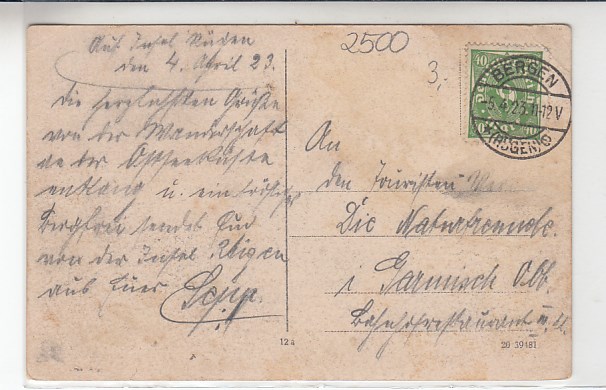 Auf Insel Rügen
den 4. April 23.
Die herzlichsten Grüße
von der Wanderschaft
an der Ostseeküste
entlang u. ein fröhliches
Bergfrei sendet Euch
von der Insel Rügen
aus Euer Sepp.
2500
3,-
40
BERGEN
5.4.23.11-12V
(RÜGEN)
An
den Touristen
Die Naturfreunde.
i Garmisch Obb.
Bahnhofrestaurant
12a
20 39481